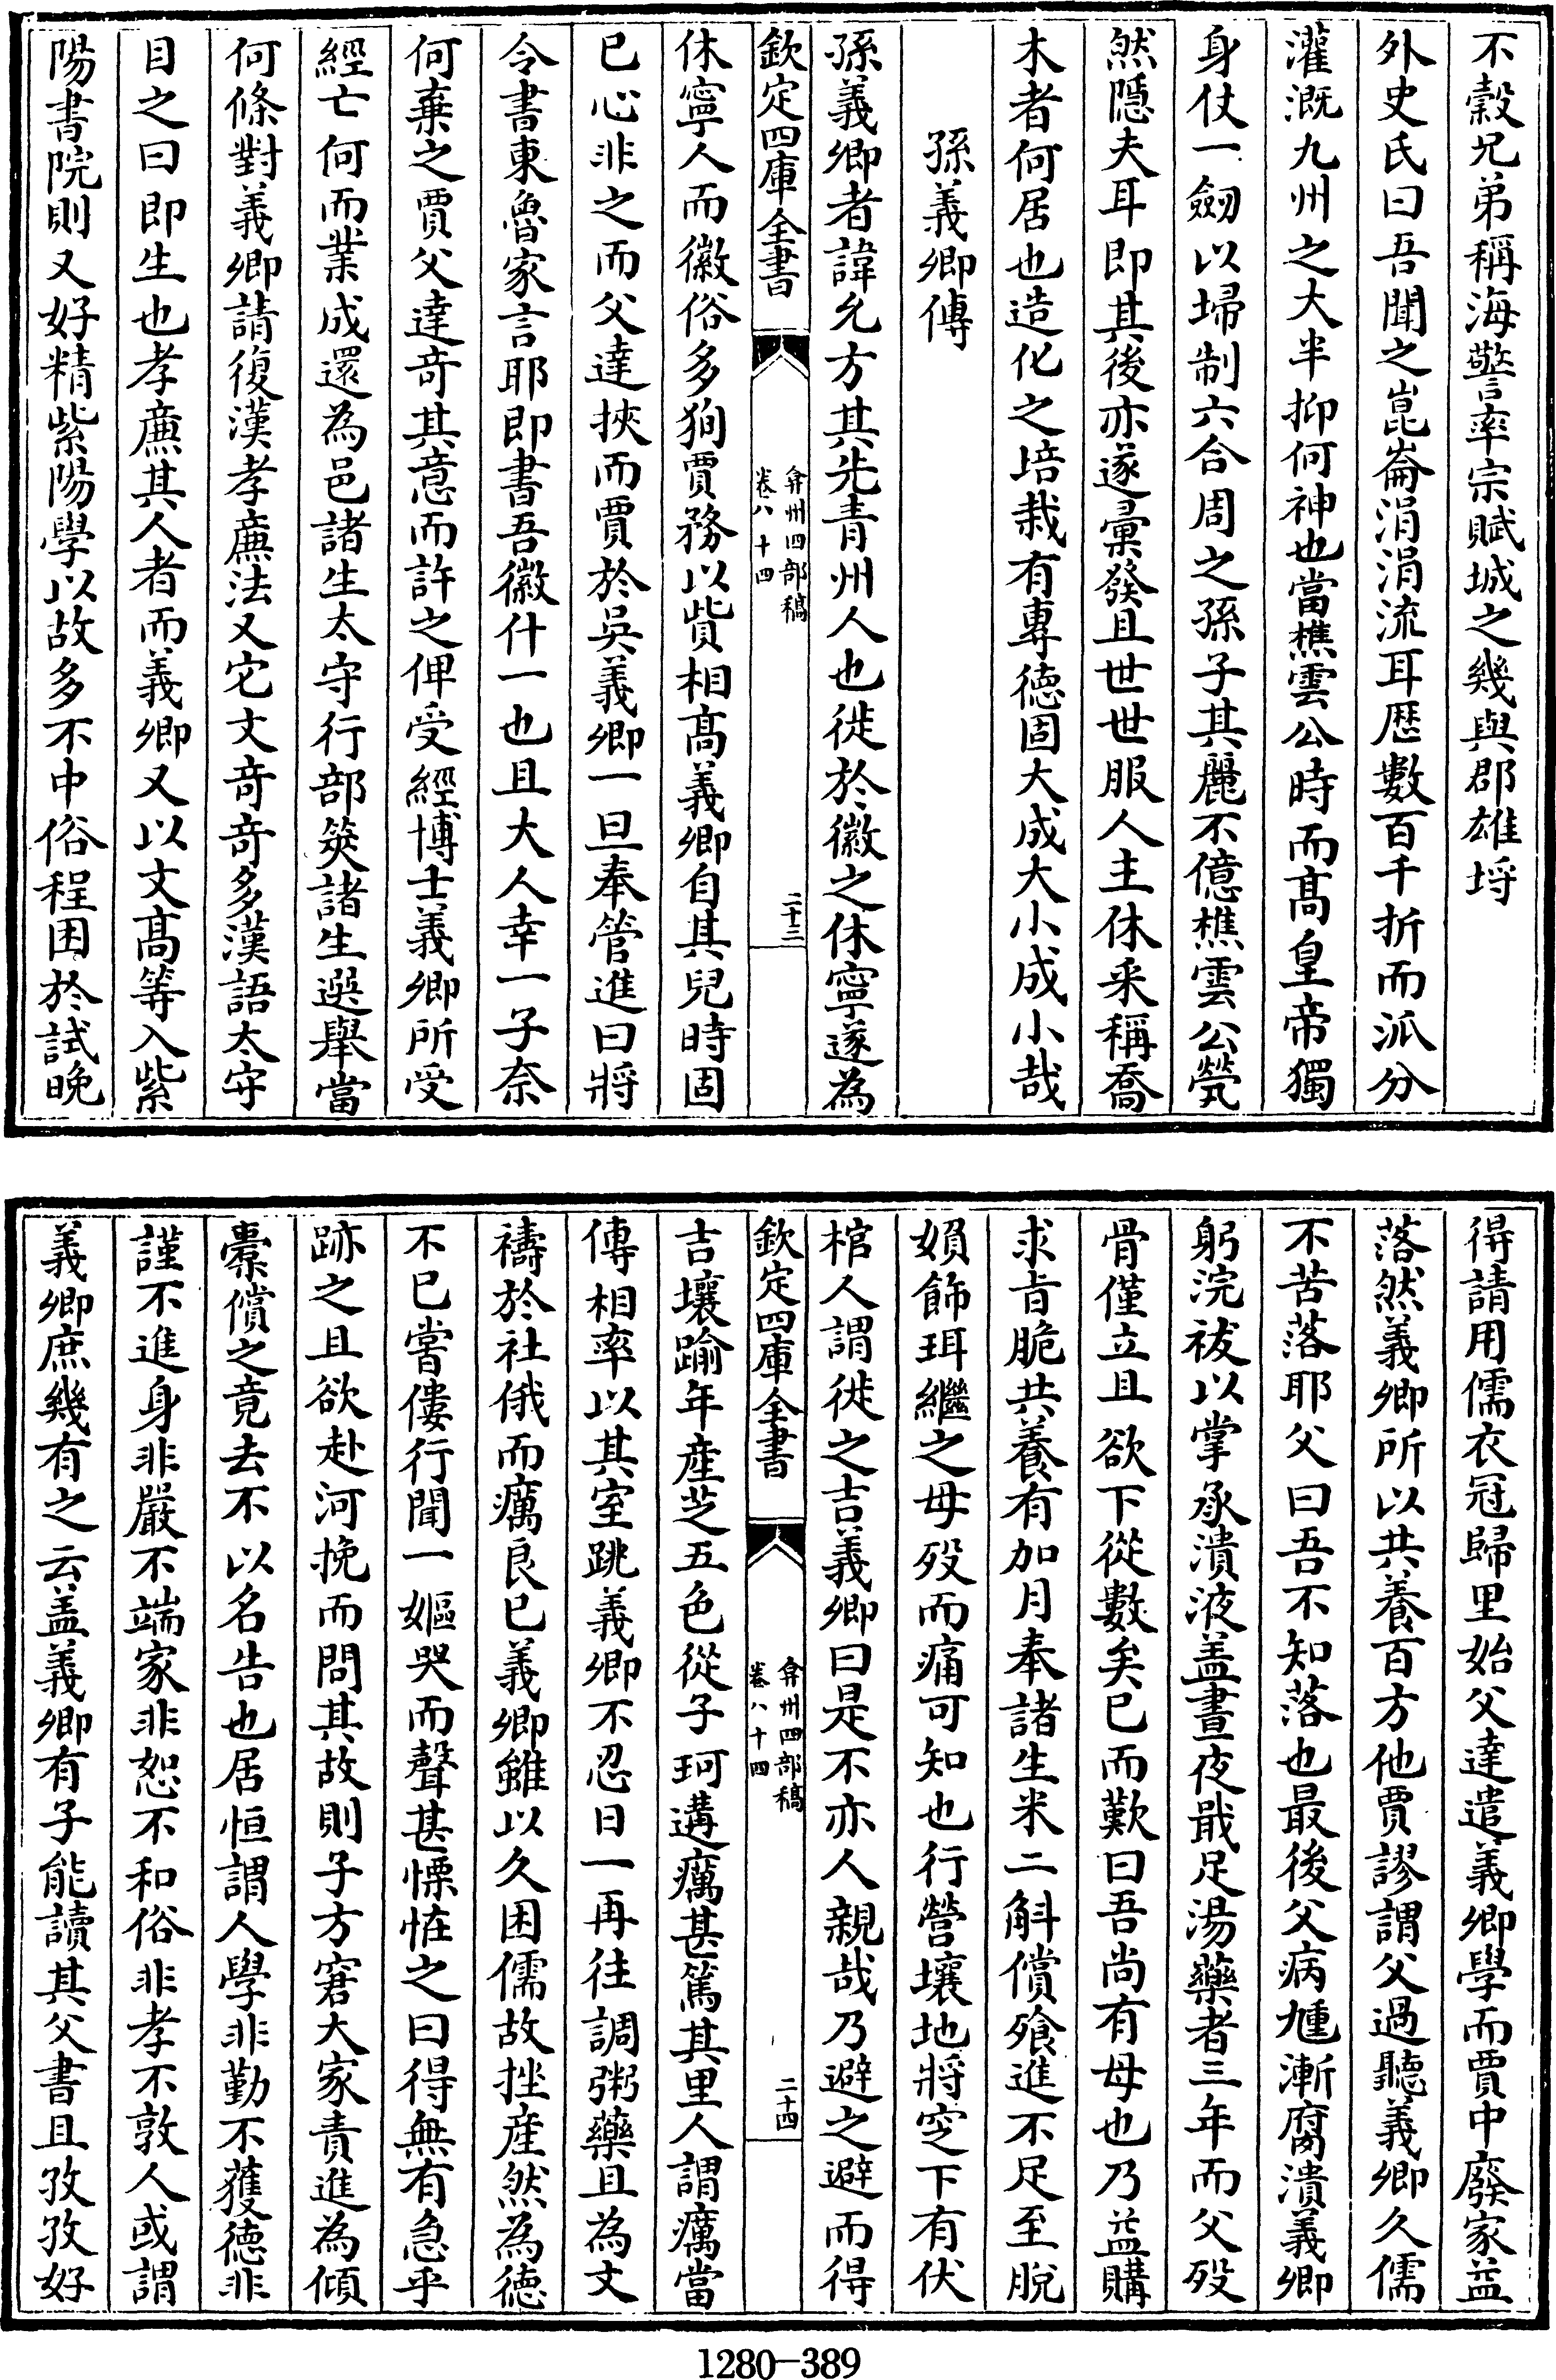 不穀兄弟稱海警率宗賦城之幾與郡雄埒
外史氏曰吾聞之崑崙涓涓流耳歴數百千折而派分
灌溉九州之大半抑何神也當樵雲公時而髙皇帝獨
身仗一劒以埽制六合周之孫子其麗不億樵雲公煢
然隠夫耳即其後亦遂彚發且世世服人主休采稱喬
木者何居也造化之培栽有專徳固大成大小成小哉
孫義卿傳
孫義卿者諱允方其先青州人也徙於徽之休寧遂為
欽定四庫全書
弇州四部稿
卷八十四
二十三
休寧人而徽俗多狥賈務以貲相髙義卿自其兒時固
已心非之而父達挾而賈於吳義卿一旦奉管進曰將
令書東魯家言耶即書吾徽什一也且大人幸一子奈
何棄之賈父達竒其意而許之俾受經博士義卿所受
經亡何而業成還為邑諸生太守行部筴諸生選舉當
何條對義卿請復漢孝廉法又它文竒竒多漢語太守
目之曰即生也孝廉其人者而義卿又以文髙等入紫
陽書院則又好精紫陽學以故多不中俗程困於試晚
得請用儒衣冠歸里始父達遣義卿學而賈中廢家益
落然義卿所以共養百方他賈謬謂父過聽義卿久儒
不苦落耶父曰吾不知落也最後父病尰漸腐潰義卿
躬浣袚以掌承潰液盖晝夜戢足湯藥者三年而父殁
骨僅立且欲下從數矣已而歎曰吾尚有母也乃益購
求㫖脆共養有加月奉諸生米二斛償飱進不足至脱
媍飾珥繼之母殁而痛可知也行營壤地將空下有伏
棺人謂徙之吉義卿曰是不亦人親哉乃避之避而得
欽定四庫全書
弇州四部稿
卷八十四
二十四
吉壤踰年産芝五色從子珂遘癘甚篤其里人謂癘當
傳相率以其室跳義卿不忍日一再往調粥藥且為文
禱於社俄而癘良已義卿雖以久困儒故挫産然為徳
不已嘗僂行聞一嫗哭而聲甚慄恠之曰得無有急乎
跡之且欲赴河挽而問其故則子方窘大家責進為傾
橐償之竟去不以名告也居恒謂人學非勤不獲徳非
謹不進身非嚴不端家非恕不和俗非孝不敦人或謂
義卿庶幾有之云盖義卿有子能讀其父書且孜孜好
1280—389